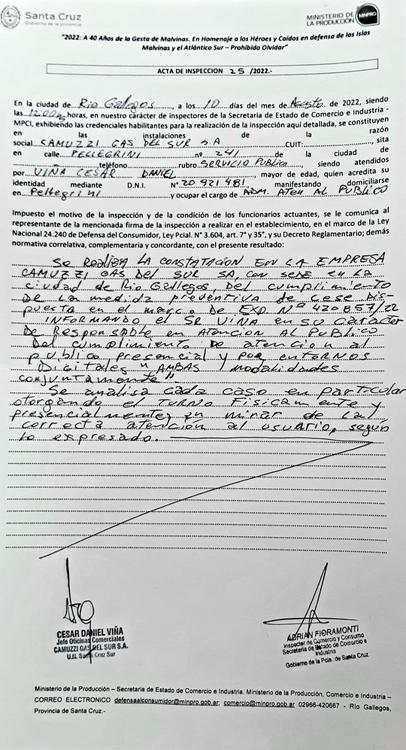 Santa Cruz
Gobierno de la provincia
MINISTERIO DE
LA PRODUCCIÓN
MINPRO
"2022: A 40 Años de la Gesta de Malvinas. En Homenaje a los Héroes y Caídos en defensa de las Islas
Malvinas y el Atlántico Sur – Prohibido Olvidar"
ACTA DE INSPECCION 25 /2022.-
En la ciudad de Rio Gallegos, a los 10 días del mes de Agosto de 2022, siendo
las 12:00 horas, en nuestro carácter de inspectores de la Secretaria de Estado de Comercio e Industria -
MPCI, exhibiendo las credenciales habilitantes para la realización de la inspección aquí detallada, se constituyen
en las instalaciones de la razón
social CAMUZZI GAS DEL SUR S.A CUIT: , sita
en calle PELLEGRINI nº 241 de la ciudad de
teléfono rubro SERVICIO PUBLICO siendo atendidos
por VIÑA CESAR DANIEL, mayor de edad, quien acredita su
identidad mediante D.N.I. N° 20921481, manifestando domiciliarse
en Pellegrini y ocupar el cargo de ADM. ATEN AL PUBLICO
Impuesto el motivo de la inspección y de la condición de los funcionarios actuantes, se le comunica al
representante de la mencionada firma de la inspección a realizar en el establecimiento, en el marco de la Ley
Nacional 24.240 de Defensa del Consumidor, Ley Pcial. N° 3.604, art. 7° y 35°, y su Decreto Reglamentario; demás
normativa correlativa, complementaria y concordante, con el presente resultado:
Se Realiza LA CONSTATACION EN LA EMPRESA
CAMUZZI GAS DEL SUR SA, con sede en la
ciudad de Rio Gallegos, Del cumplimiento
De La medida preventiva de cese Dis-
puesta en el marco de EXP N° 420857/22
INFORMANDO el SR VIÑA en su carácter
De Responsable en Atencion al Publico
Del cumplimiento de atencion al
publico presencial y por entornos
Digitales "AMBAS modalidades
conjuntamente"
Se analisa cada caso en particular
otorgando el TURNO Fisicamente y
presencialmente, en mirar de la
correcta atencion al usuario, segun
lo expresado.
CESAR DANIEL VIÑA
Jefe Oficinas Comerciales
CAMUZZI GAS DEL SUR S.A.
U.N. Santa Cruz Sur
ADRIAN FIORAMONTI
Inspector de Comercio y Consumo
Secretaría de Estado de Comercio e
Industria
Gobierno de la Pcia. de Santa Cruz
Ministerio de la Producción – Secretaria de Estado de Comercio e Industria. Ministerio de la Producción, Comercio e Industria –
CORREO ELECTRONICO defensaalconsumidor@minpro.gob.ar; comercio@minpro.gob.ar 02966-420667 - Río Gallegos,
Provincia de Santa Cruz.-